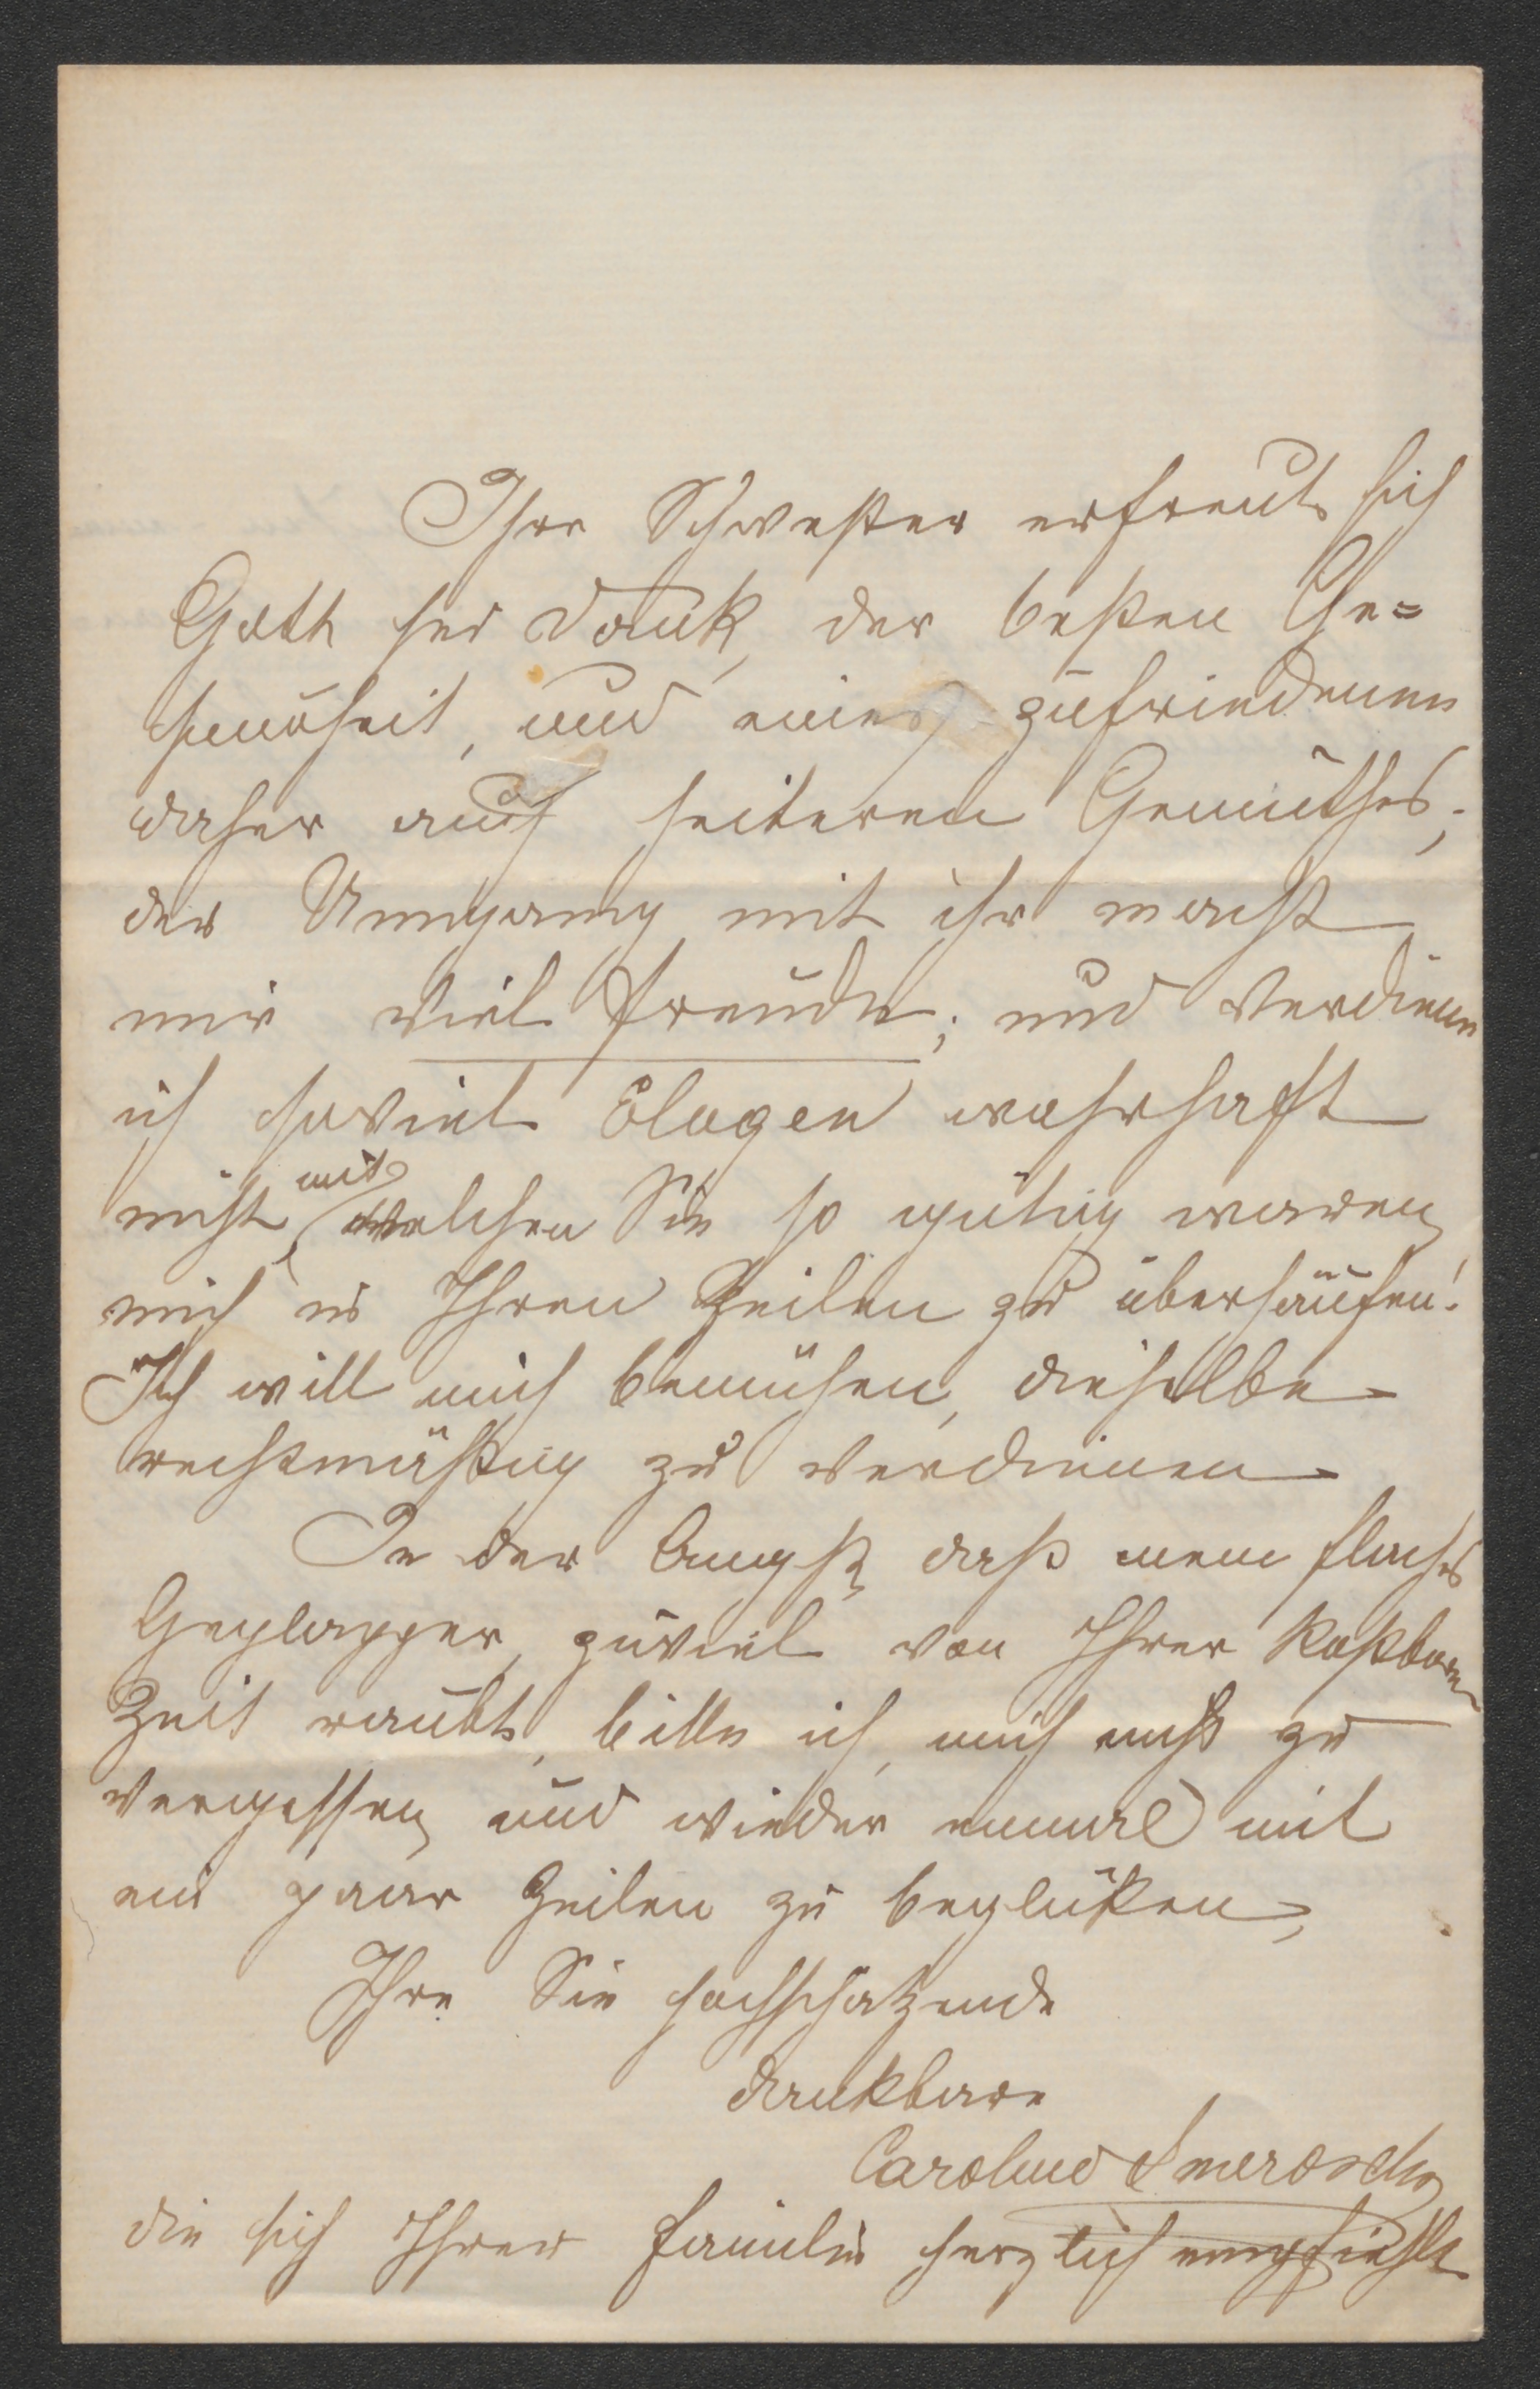 Ihre Schwester erfreut sich
Goth sei Dank, der besten Ge=
sundheit, und eines zufriedenen
daher auch heiteren Gemüthes;
der Umgang mit ihr macht
mir viel Freude; und verdiene
ich soviel Elogen wahrhaft
nicht, mit welchen Sie so gütig waren,
mich in Ihren Zeilen zu überhäufen!
Ich will mich bemühen, dieselbe
rechtmäßig zu verdienen.
In der Angst, daß mein flaches
Geplapper, zuviel von Ihrer kostbaren
Zeit raubt, bitte ich, mich nicht zu
vergessen, und wieder einmal mit
ein paar Zeilen zu beglücken,
Ihre Sie hochschätzende
dankbare
Caroline
die sich Ihrer Familie herzlich empfiehlt